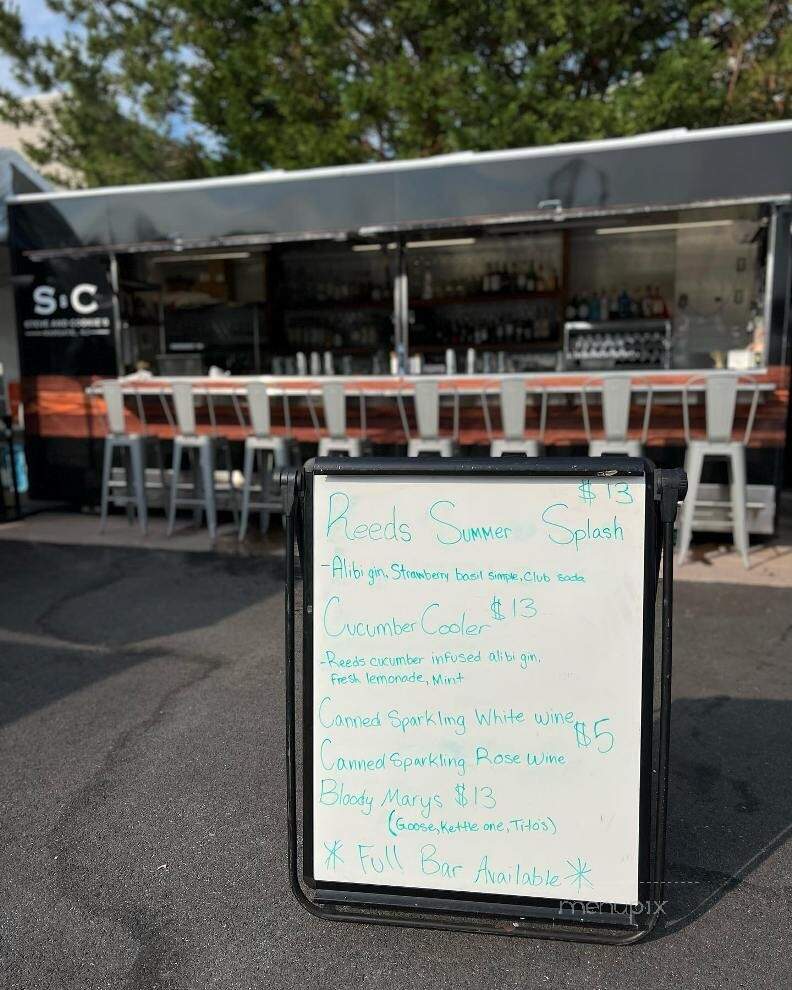 S:C
STEVE AND COOKIE'S
$13
Reeds Summer Splash
-Alibi gin, Strawberry basil simple, Club soda
Cucumber Cooler $13
-Reeds cucumber infused alibi gin,
fresh lemonade, Mint
Canned Sparkling White wine
$5
Canned Sparkling Rose Wine
Bloody Marys $13
(Goose, Kettle one, Tito's)
* Full Bar Available *
menupix